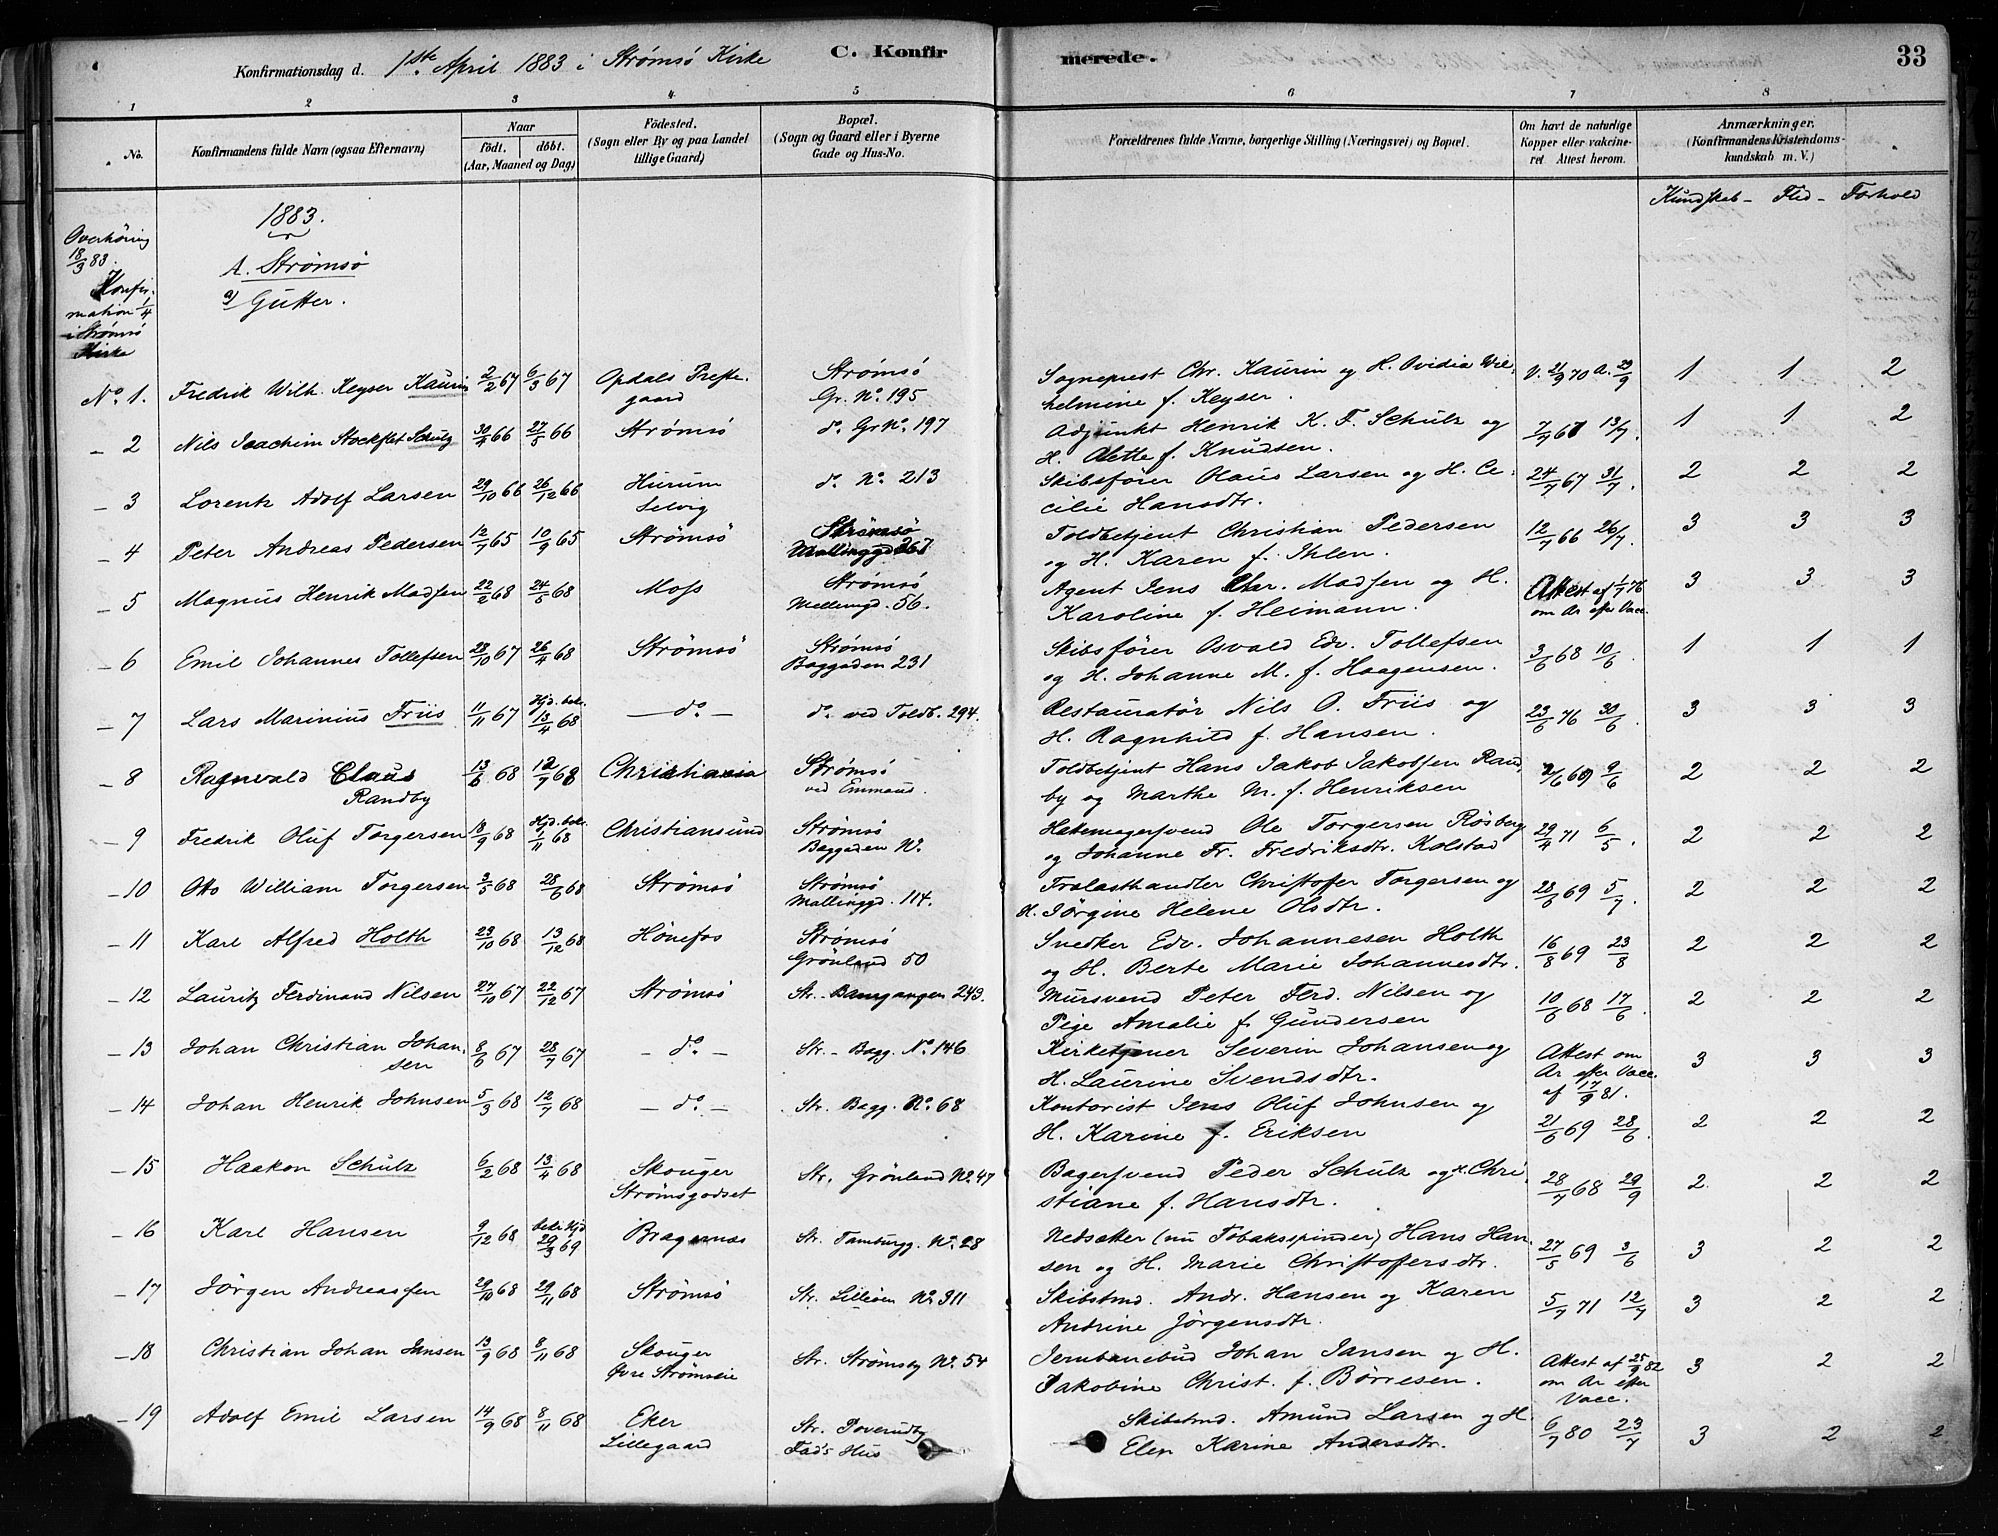 Konfirmationsdag d. 1ste April 1883 i Strømsö Kirke C. Konfirmerede. 33
1 2 3 4 5 6 7 8
No. Konfirmandens fulde Navn (ogsaa Efternavn) Naar födt. döbt. (Aar, Maaned og Dag) Födested. (Sogn eller By og paa Landet tillige Gaard) Bopæl. (Sogn og Gaard eller i Byerne Gade og Hus-No. Forældrenes fulde Navne, borgerlige Stilling (Næringsvei) og Bopæl. Om havt de naturlige Kopper eller vakcineret Attest herom. Anmærkninger. (Konfirmandens Kristendomskundskab m. V.)
Kundskab - Flid - Forhold
1883.
Overhöring 18/3 83.
Konfirmation 1/4 i Strømsö Kirke
A. Strømsö
a) Gutter.
No. 1. Fredrik Wilh. Keyser Kaurin 2/2 67 6/3 67 Opdals Prestegaard Strømsö Gr. No. 195 Sogneprest Chr. Kaurin og H. Ovidia Wilhelmine f. Keyser. V. 21/9 70 A. 29/9 1 1 2
- 2 Nils Joachim Stockflet Schulz 30/4 66 27/5 66 Strømsö do. Gr No. 197 Adjunkt Henrik K. F. Schulz og H. Alette f. Knudsen. 7/7 67 13/7. 1 1 2
- 3 Lorentz Adolf Larsen 29/10 66 26/12 66 Hurum Selvig do. No. 213 Skibsförer Olaus Larsen og H. Cecilie Hansdtr. 24/7 67 31/7. 2 2 2
- 4 Peter Andreas Pedersen 12/7 65 10/9 65 Strømsö Strømsö Mallinggd 267 Toldbetjent Christian Pedersen og H. Karen f. Ihlen. 12/7 66 26/7. 3 3 3
- 5 Magnus Henrik Madsen 22/2 68 24/5 68 Moss Strømsö Mallingd. 56. Agent Jens Chr. Madsen og H. Karoline f. Heimann. Attest af 1/7 76 om Ar efter Vacc. 3 3 3
- 6 Emil Johannes Tollefsen 28/10 67 26/4 68 Strømsö Strømsö Baggaden 231 Skibsförer Osvald Edv. Tollefsen og H. Johanne M. f. Haagensen. 3/6 68 10/6. 1 1 1
- 7 Lars Marinius Friis 11/11 67 Hjd. bekr. 13/4 68 - do. - do. ved Toldb. 294. Restauratör Nils O. Friis og H. Ragnhild f. Hansen. 23/6 76 30/6. 3 3 3
- 8 Ragnvald Claus Randby 13/6 68 12/7 68 Christiania Strømsö ved Emmaud. Toldbetjent Hans Jakob Jakobsen Randby og Marthe M. f. Henriksen 2/6 69 9/6 2 2 2
- 9 Fredrik Oluf Torgersen 18/9 68 Hjd. bekr. 1/11 68 Christiansund Strømsö Baggaden No. Hattemagersvend Ole Torgersen Rösberg og Johanne Fr. Fredriksdtr. Kolstad 29/4 71 6/5. 2 2 2
- 10 Otto William Torgersen 3/5 68 28/6 68 Strømsö Strømsö Mallinggd. 114. Trælasthandler Christofer Torgersen og H. Jörgine Helene Olsdtr. 28/6 69 5/7. 2 2 2
- 11 Karl Alfred Holth 23/10 68 13/12 68 Hönefos Strømsö Grönland 50 Snedker Edv. Johannesen Holth og H. Berte Marie Johannesdtr. 16/8 69 23/8 2 2 2
- 12 Lauritz Ferdinand Nilsen 27/10 67 22/12 67 Strømsö Str. - Bamgangen 249. Mursvend Peter Ferd. Nilsen og Pige Amalie f. Gundersen 10/6 68 17/6. 2 2 2
- 13 Johan Christian Johansen 8/6 67 28/7 67 - do. - Str. - Bagg. No. 146 Kirketjener Severin Johansen og H. Laurine Svendsdtr. Attest om Ar efter Vacc. af 17/9 81. 3 3 3
- 14 Johan Henrik Johnsen 5/3 68 12/7 68 - do. - Str. Bagg. No. 68 Kontorist Jens Oluf Johnsen og H. Karine f. Eriksen 21/6 69 28/6. 2 2 2
- 15 Haakon Schulz 6/2 68 13/4 68 Skouger Strømsgodset Str. Grönland No. 47 Bagersvend Peder Schulz og H. Christiane f. Hansdtr. 28/7 68 29/9 2. 2 2
- 16 Karl Hansen 9/12 68 bekr. Hjd 29/3 69 Bragernæs Str. Tamburgg. No. 28 Nedsætter (nu Tobaksspinder) Hans Hansen og H. Marie Christoffersdtr. 27/5 69 3/6 3 2 2
- 17 Jörgen Andreassen 29/10 68 29/11 68 Strømsö Str. Lilleöen No. 311 Skibstmd. Andr. Hansen og Karen Andrine Jörgensdtr. 5/7 71 12/7 3 2 2
- 18 Christian Johan Jansen 13/9 68 8/11 68 Skouger Øvre Strømseie Str. Strømsby No. 54 Jernbanebud Johan Jansen og H. Jakobine Christ. f. Börresen. Attest af 25/9 82 om Ar efter Vacc. 3 2 2
- 19 Adolf Emil Larsen 14/9 68 8/11 68 Eker Lillegaard Str. Poverudby Fads Hus Skibstmd. Amund Larsen og H. Elen Karine Andersdtr. 6/7 80 23/7 3 2 2